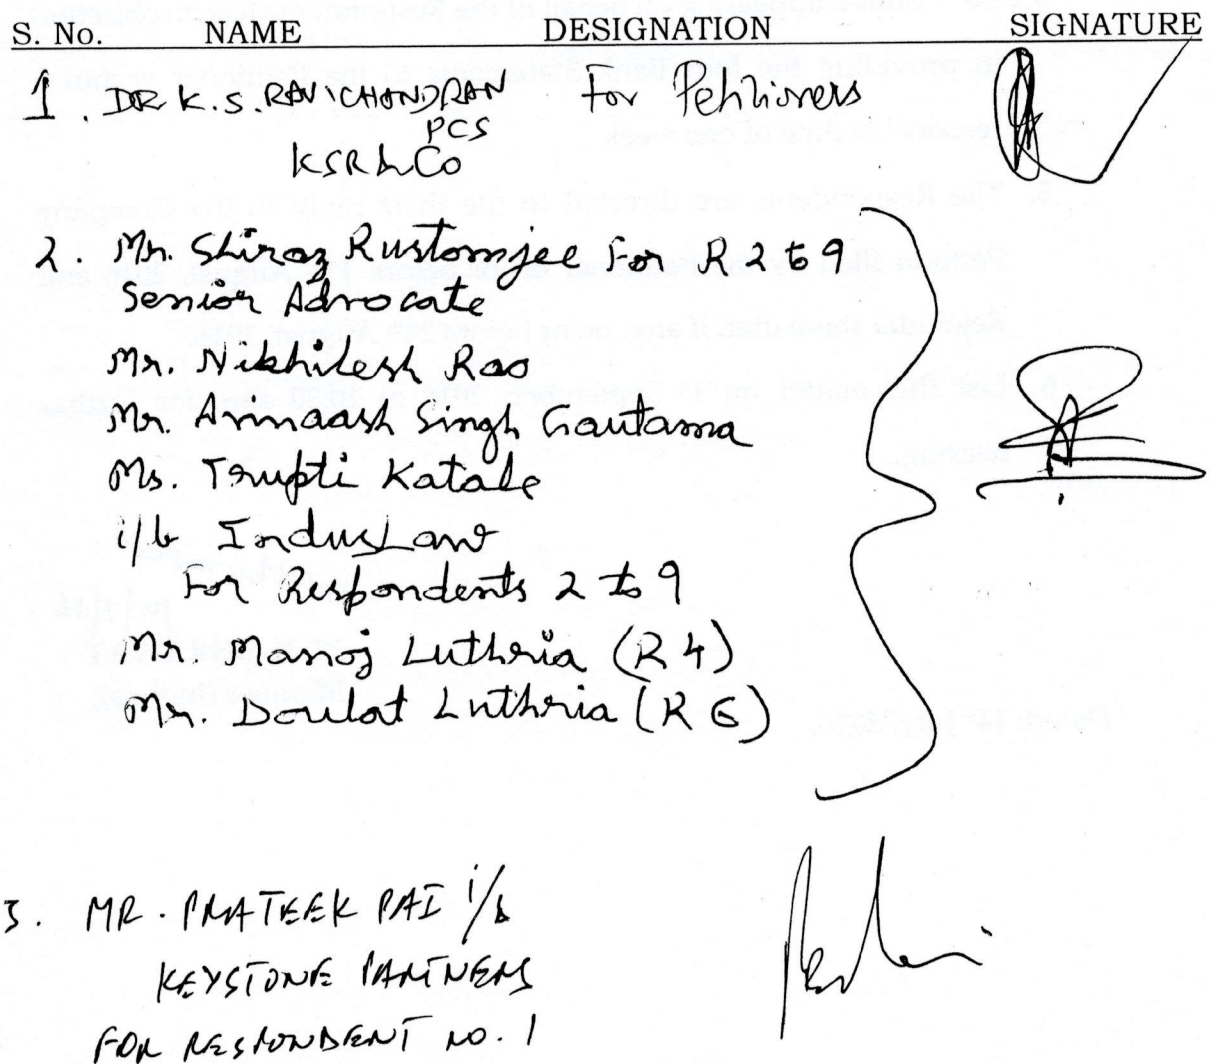 S. No. NAME DESIGNATION SIGNATURE
1. DR K.S. RAVICHANDRAN For Petitioners
PCS
KSR & Co
2. Mr. Shiraz Rustomjee For R 2 to 9
Senior Advocate
Mr. Nikhilesh Rao
Mr. Annaash Singh Gautama
Ms. Trupti Katale
i/b IndusLaw
For Respondents 2 to 9
Mr. Manoj Luthria (R 4)
Mr. Doulat Luthria (R 6)
3. MR. PRATEEK PAI i/b
KEYSTONE PARTNERS
FOR RESPONDENT NO. 1